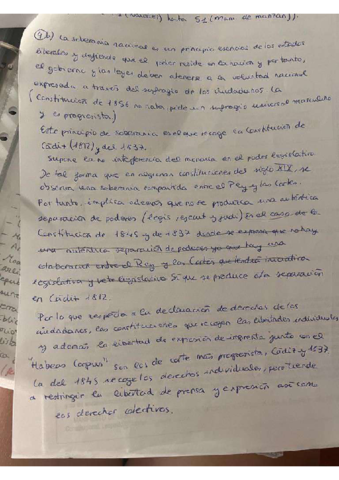 b) La soberanía nacional es un principio esencial de los estados
liberales y significa que el poder reside en la nación y por tanto,
el gobierno y las leyes deben atenerse a la voluntad nacional
expresada a través del sufragio de los ciudadanos (La
Constitución de 1856 no nata pide un sufragio universal masculino
y es progresista)
Este principio de soberanía es el que recoge la Constitución de
Cádiz (1812) y del 1837.
Supone la no interferencia del monarca en el poder legislativo
De tal forma que en algunas constituciones del siglo XIX, se
observa una soberanía compartida entre el Rey y las Cortes.
Por tanto, implica además que no se produzca una auténtica
separación de poderes (legis, ejecut y jud.) En el caso de la
Constitución de 1845 y de 1837 no hay
una auténtica separación de poderes ya que hay una
colaboración entre el Rey y las Cortes iniciativa
legislativa y Sí que se produce esta separación
en Cádiz 1812.
Por lo que respecta a la declaración de derechos de los
ciudadanos, las constituciones que recogen las libertades individuales
y además la libertad de expresión de imprenta junto con el
"Habeas Corpus" son las de corte más progresista, Cádiz y 1837
La del 1845 recoge los derechos individuales, pero tiende
a restringir la libertad de prensa y expresión así como
los derechos colectivos.